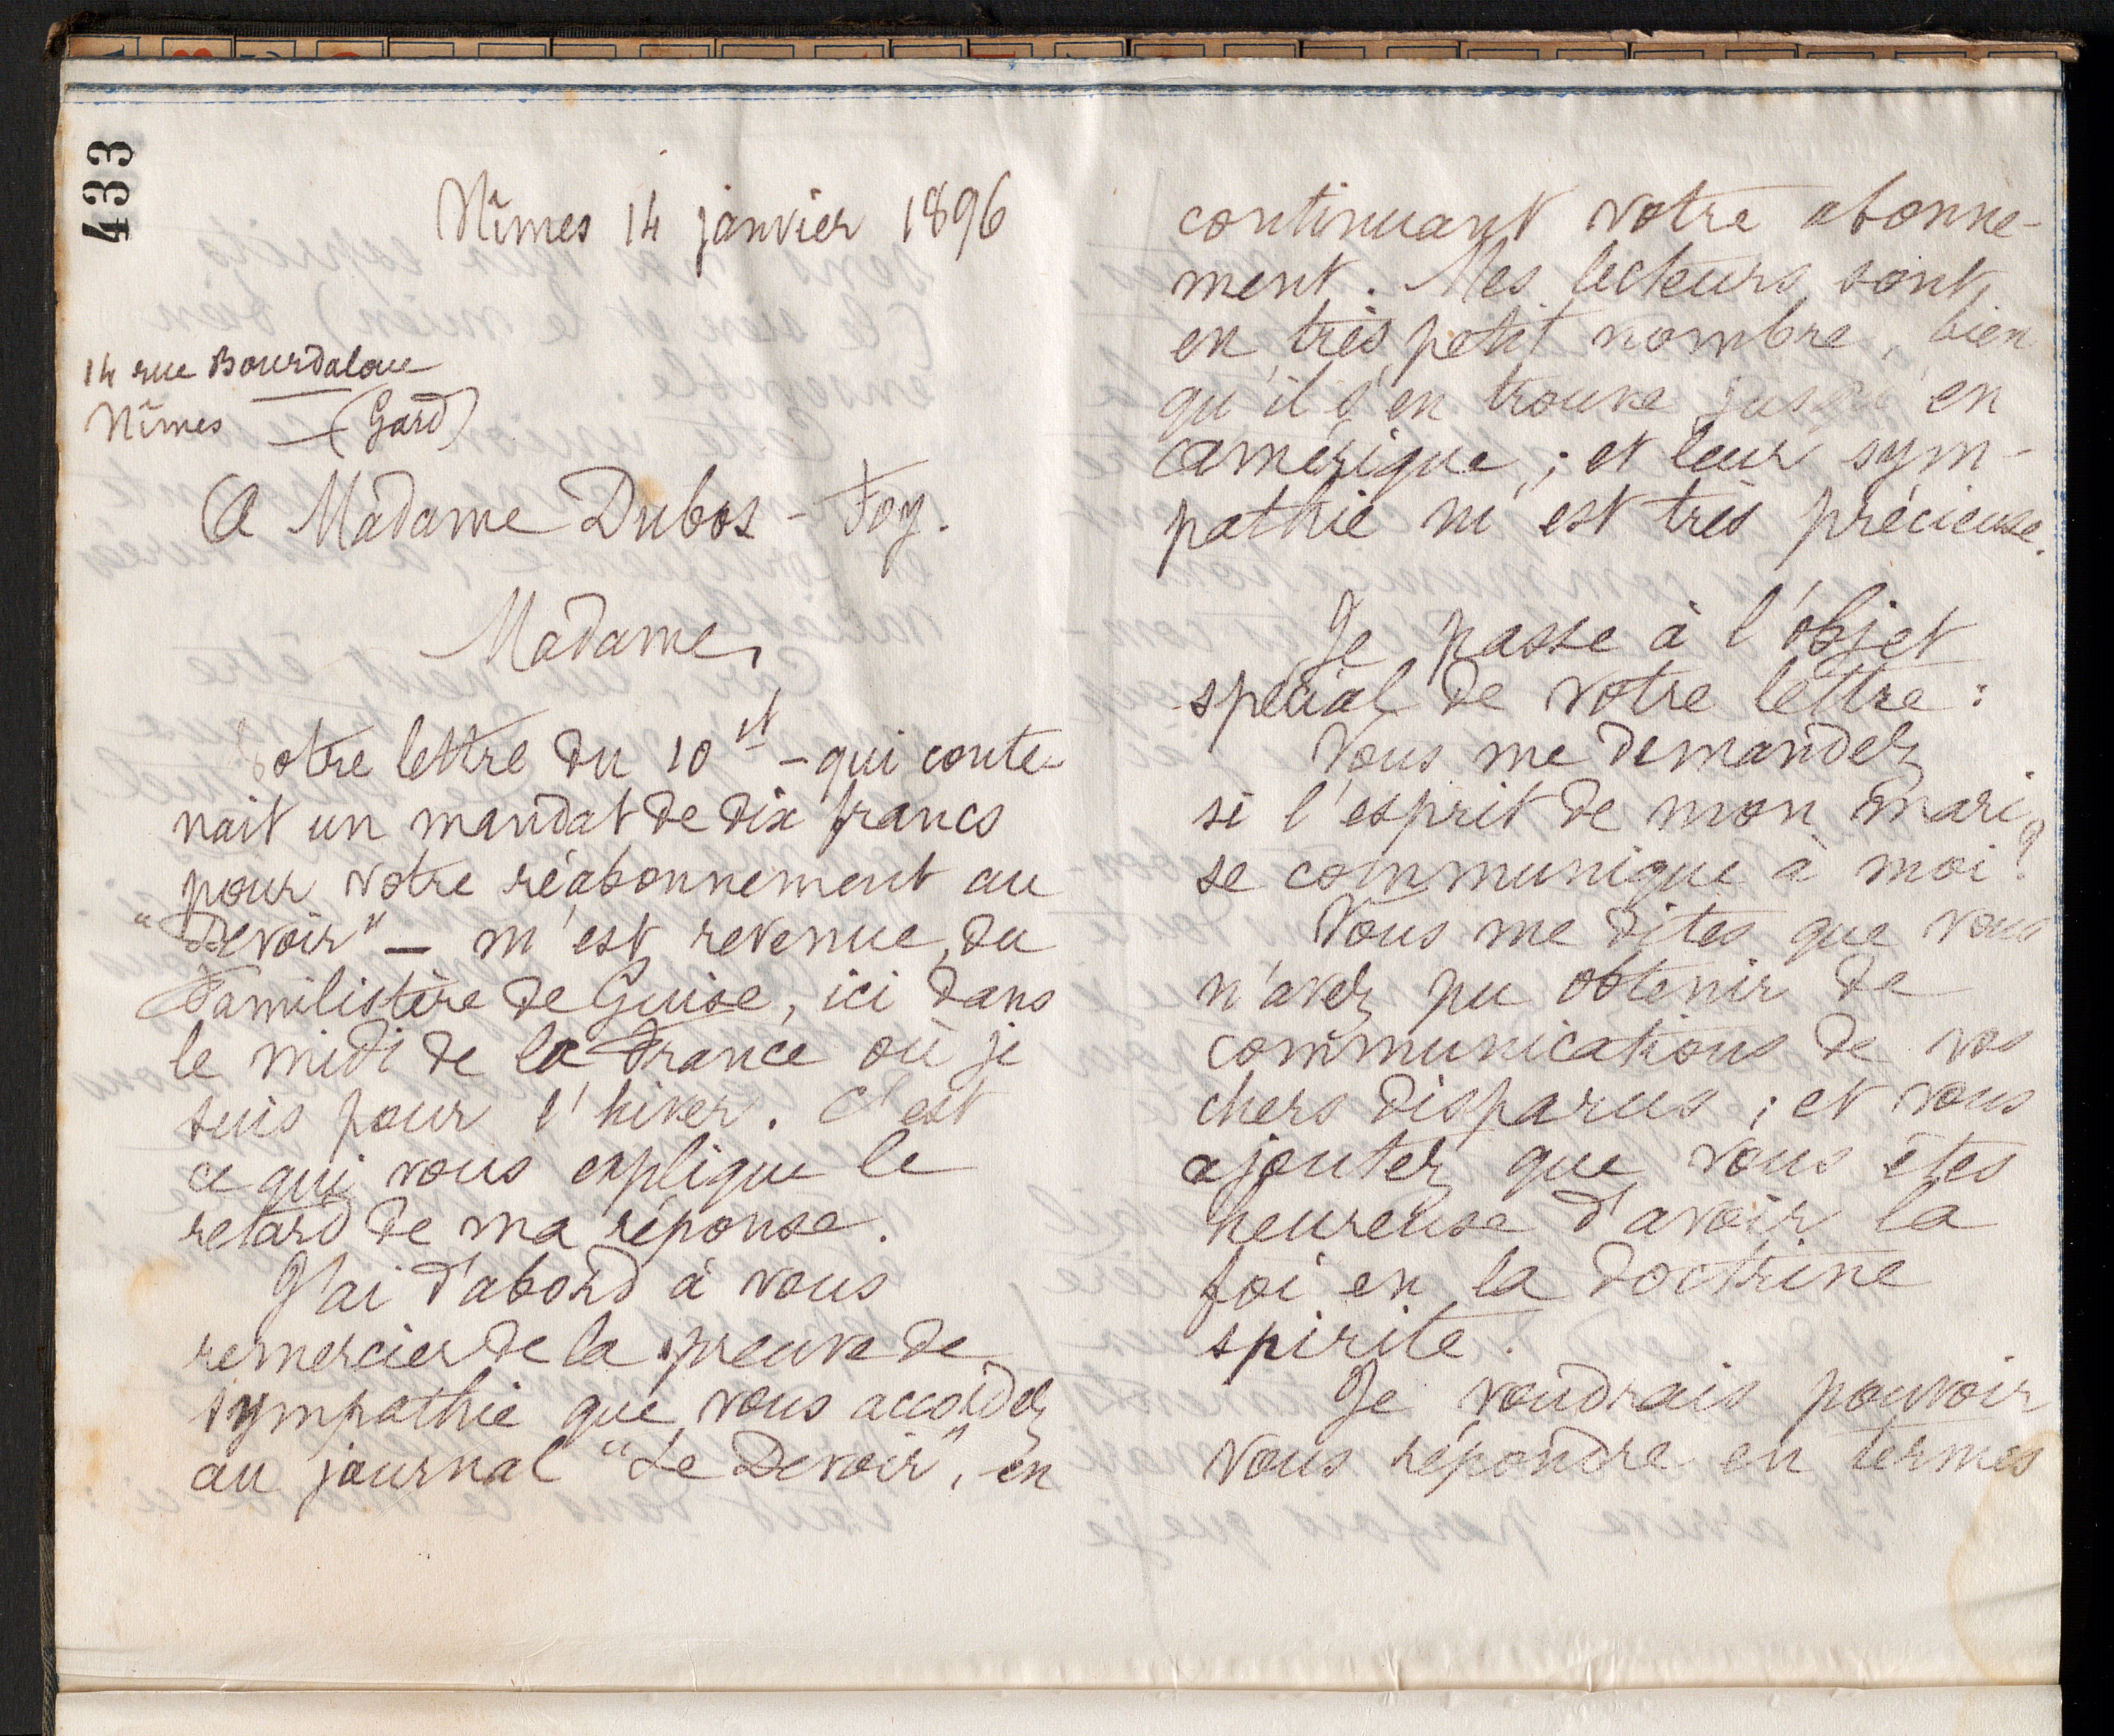 433
Nîmes 14 janvier 1896
14 rue Bourdaloue
Nîmes — (Gard)
A Madame Dubos-Foy.
Madame,
Votre lettre du 10 ct – qui conte-
nait un mandat de dix francs
pour votre réabonnement au
"Devoir" – m'est revenue, du
Familistère de Guise, ici dans
le midi de la France où je
suis pour l'hiver. C'est
ce qui vous explique le
retard de ma réponse.
J'ai d'abord à vous
remercier de la preuve de
sympathie que vous accordez
au journal "Le Devoir", en
continuant votre abonne-
ment. Mes lecteurs sont
en très petit nombre, bien
qu'il s'en trouve jusqu'en
Amérique ; et leur sym-
pathie m'est très précieuse.
Je passe à l'objet
spécial de votre lettre :
Vous me demandez
si l'esprit de mon mari
se communique à moi ?
Vous me dites que vous
n'avez pu obtenir de
communications de vos
chers disparus ; et vous
ajoutez que vous êtes
heureuse d'avoir la
foi en la doctrine
spirite.
Je voudrais pouvoir
vous répondre en termes